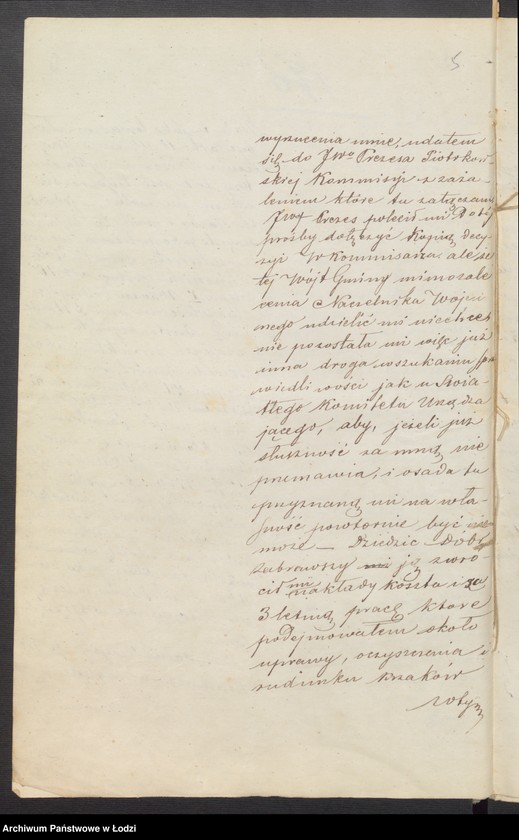 5
wyrzucenia mnie, udałem
się do JWo Prezesa Piotrkow-
skiej Kommisyi z zaża-
leniem które tu załączam
JWy Prezes polecił mi do tej
prośby dołączyć Kopią decy-
zyi W Kommisarza. ale ze
tej Wójt Gminy mimo zale
cenia Naczelnika Wojen
nego udzielić mi niechciał
nie pozostała mi więc już
inna droga w szukaniu spra
wiedliwości jak u Świa-
tłego Komitetu Urządza
jącego, aby, jeżeli już
słuszność za mną nie
przemawia, i osada ta
przyznaną mi na wła-
sność powtornie być nie
może — Dziedzic Dobr
zabrawszy ją zwro-
cił mi nakłady koszta i za
3 letnią pracę które
podejmowałem około
uprawy, oczyszczenia i
rudunku krzaków
w tym
Archiwum Państwowe w Łodzi